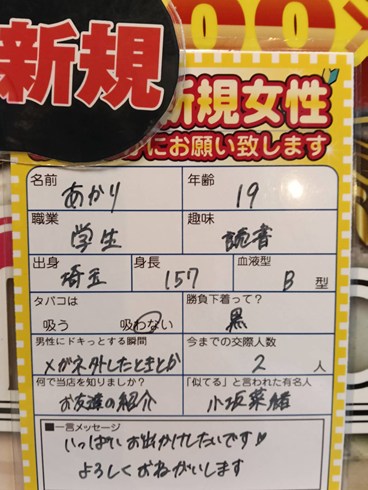 00
新規
新規女性
にお願い致します
名前 あかり 年齢 19
職業 学生 趣味 読書
出身 埼玉 身長 157 血液型 B 型
タバコは 勝負下着って?
吸う 吸わない 黒
男性にドキっとする瞬間 今までの交際人数
メガネ外したときとか 2 人
何で当店を知りましたか? 「似てる」と言われた有名人
お友達の紹介 小坂菜緒
■一言メッセージ
いっぱいお出かけしたいです♡
よろしくおねがいします